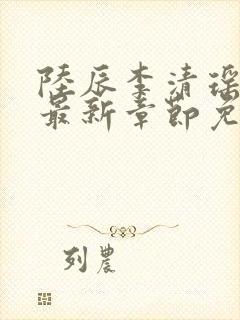 陸辰李清瑶
最新章節免
列農